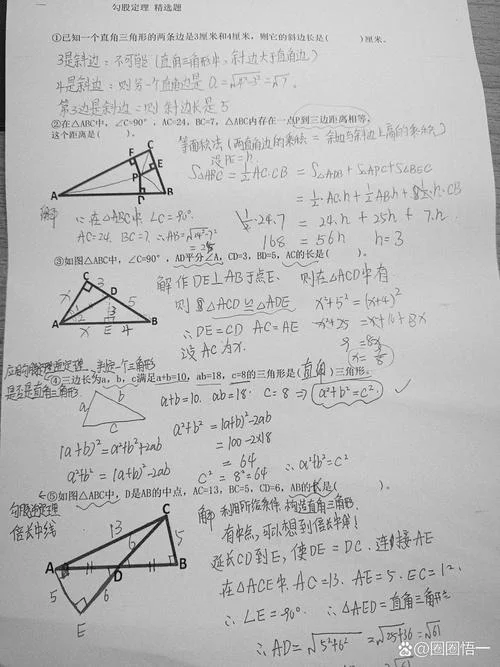 勾股定理 精选题
①已知一个直角三角形的两条边是3厘米和4厘米，则它的斜边长是（ ）厘米。
3是斜边：不可能（直角三角形中，斜边大于直角边）
4是斜边：则另一个直角边是 a=√4²-3²=√7。
第3边是斜边：则斜边长是 5
②在△ABC中，∠C=90°，AC=24，BC=7，△ABC内存在一点P到三边距离相等，
这个距离是（ ）。
等面积法（两直角边的乘积 = 斜边与斜边上高的乘积）
设PE=h
S△ABC=½AC·CB = S△APB+S△APC+S△BPC
= ½·AC·h+½AB·h+½h·CB
½·24·7 = 24·h+25h+7·h
168 = 56h h=3
C
F
E
P
A
D
B
解
∵在△ABC中 ∠C=90°
AC=24. BC=7. ∴AB=√24²+7²
=25
③如图△ABC中，∠C=90°，AD平分∠A，CD=3，BD=5，AC的长是（ ）。
解 作DE⊥AB于点E. 则在△ACD中有
则 △ACD≌△ADE x²+5²=(x+4)²
∴DE=CD AC=AE x²+25=x²+16+8x
设AC为x. 9=8x
C
3
D
x
5
3
A
x
E
4
B
④三边长为a，b，c满足a+b=10，ab=18，c=8的三角形是（直角）三角形。
是否是直角三角形
a
b
c
a+b=10. ab=18. c=8 ⇒ a²+b²=c². ✓
(a+b)²=a²+b²+2ab
a²+b²=(a+b)²-2ab
a²+b²=(a+b)²-2ab
=100-2×18
=64
c²=8²=64 ∴a²+b²=c²
⑤如图△ABC中，D是AB的中点，AC=13，BC=5，CD=6，AB的长是（ ）。
倍长中线
解 利用所给条件. 构造直角三角形.
有中点，可以想到倍长中线！
延长CD到E，使DE=DC. 连接AE
在△ACE中. AC=13. AE=5. EC=12.
∴∠E=90°. ∴△AED=直角三角形
∴AD=√5²+6²=√25+36=√61
C
13
6
5
A
D
B
5
6
E
百家号/圈圈悟一